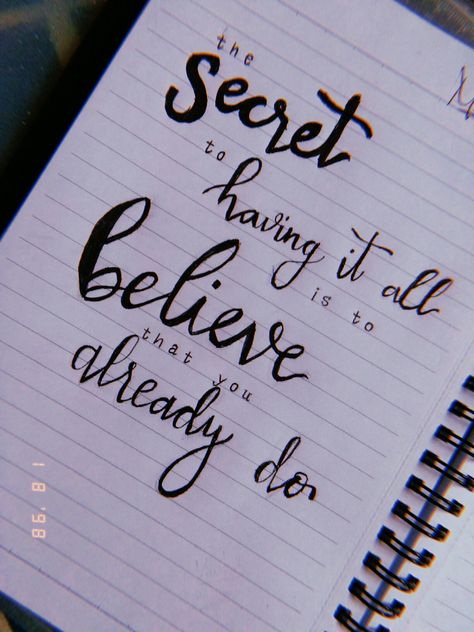 the
secret
to
having it all
is to
believe
that you
already do
1 8 '98